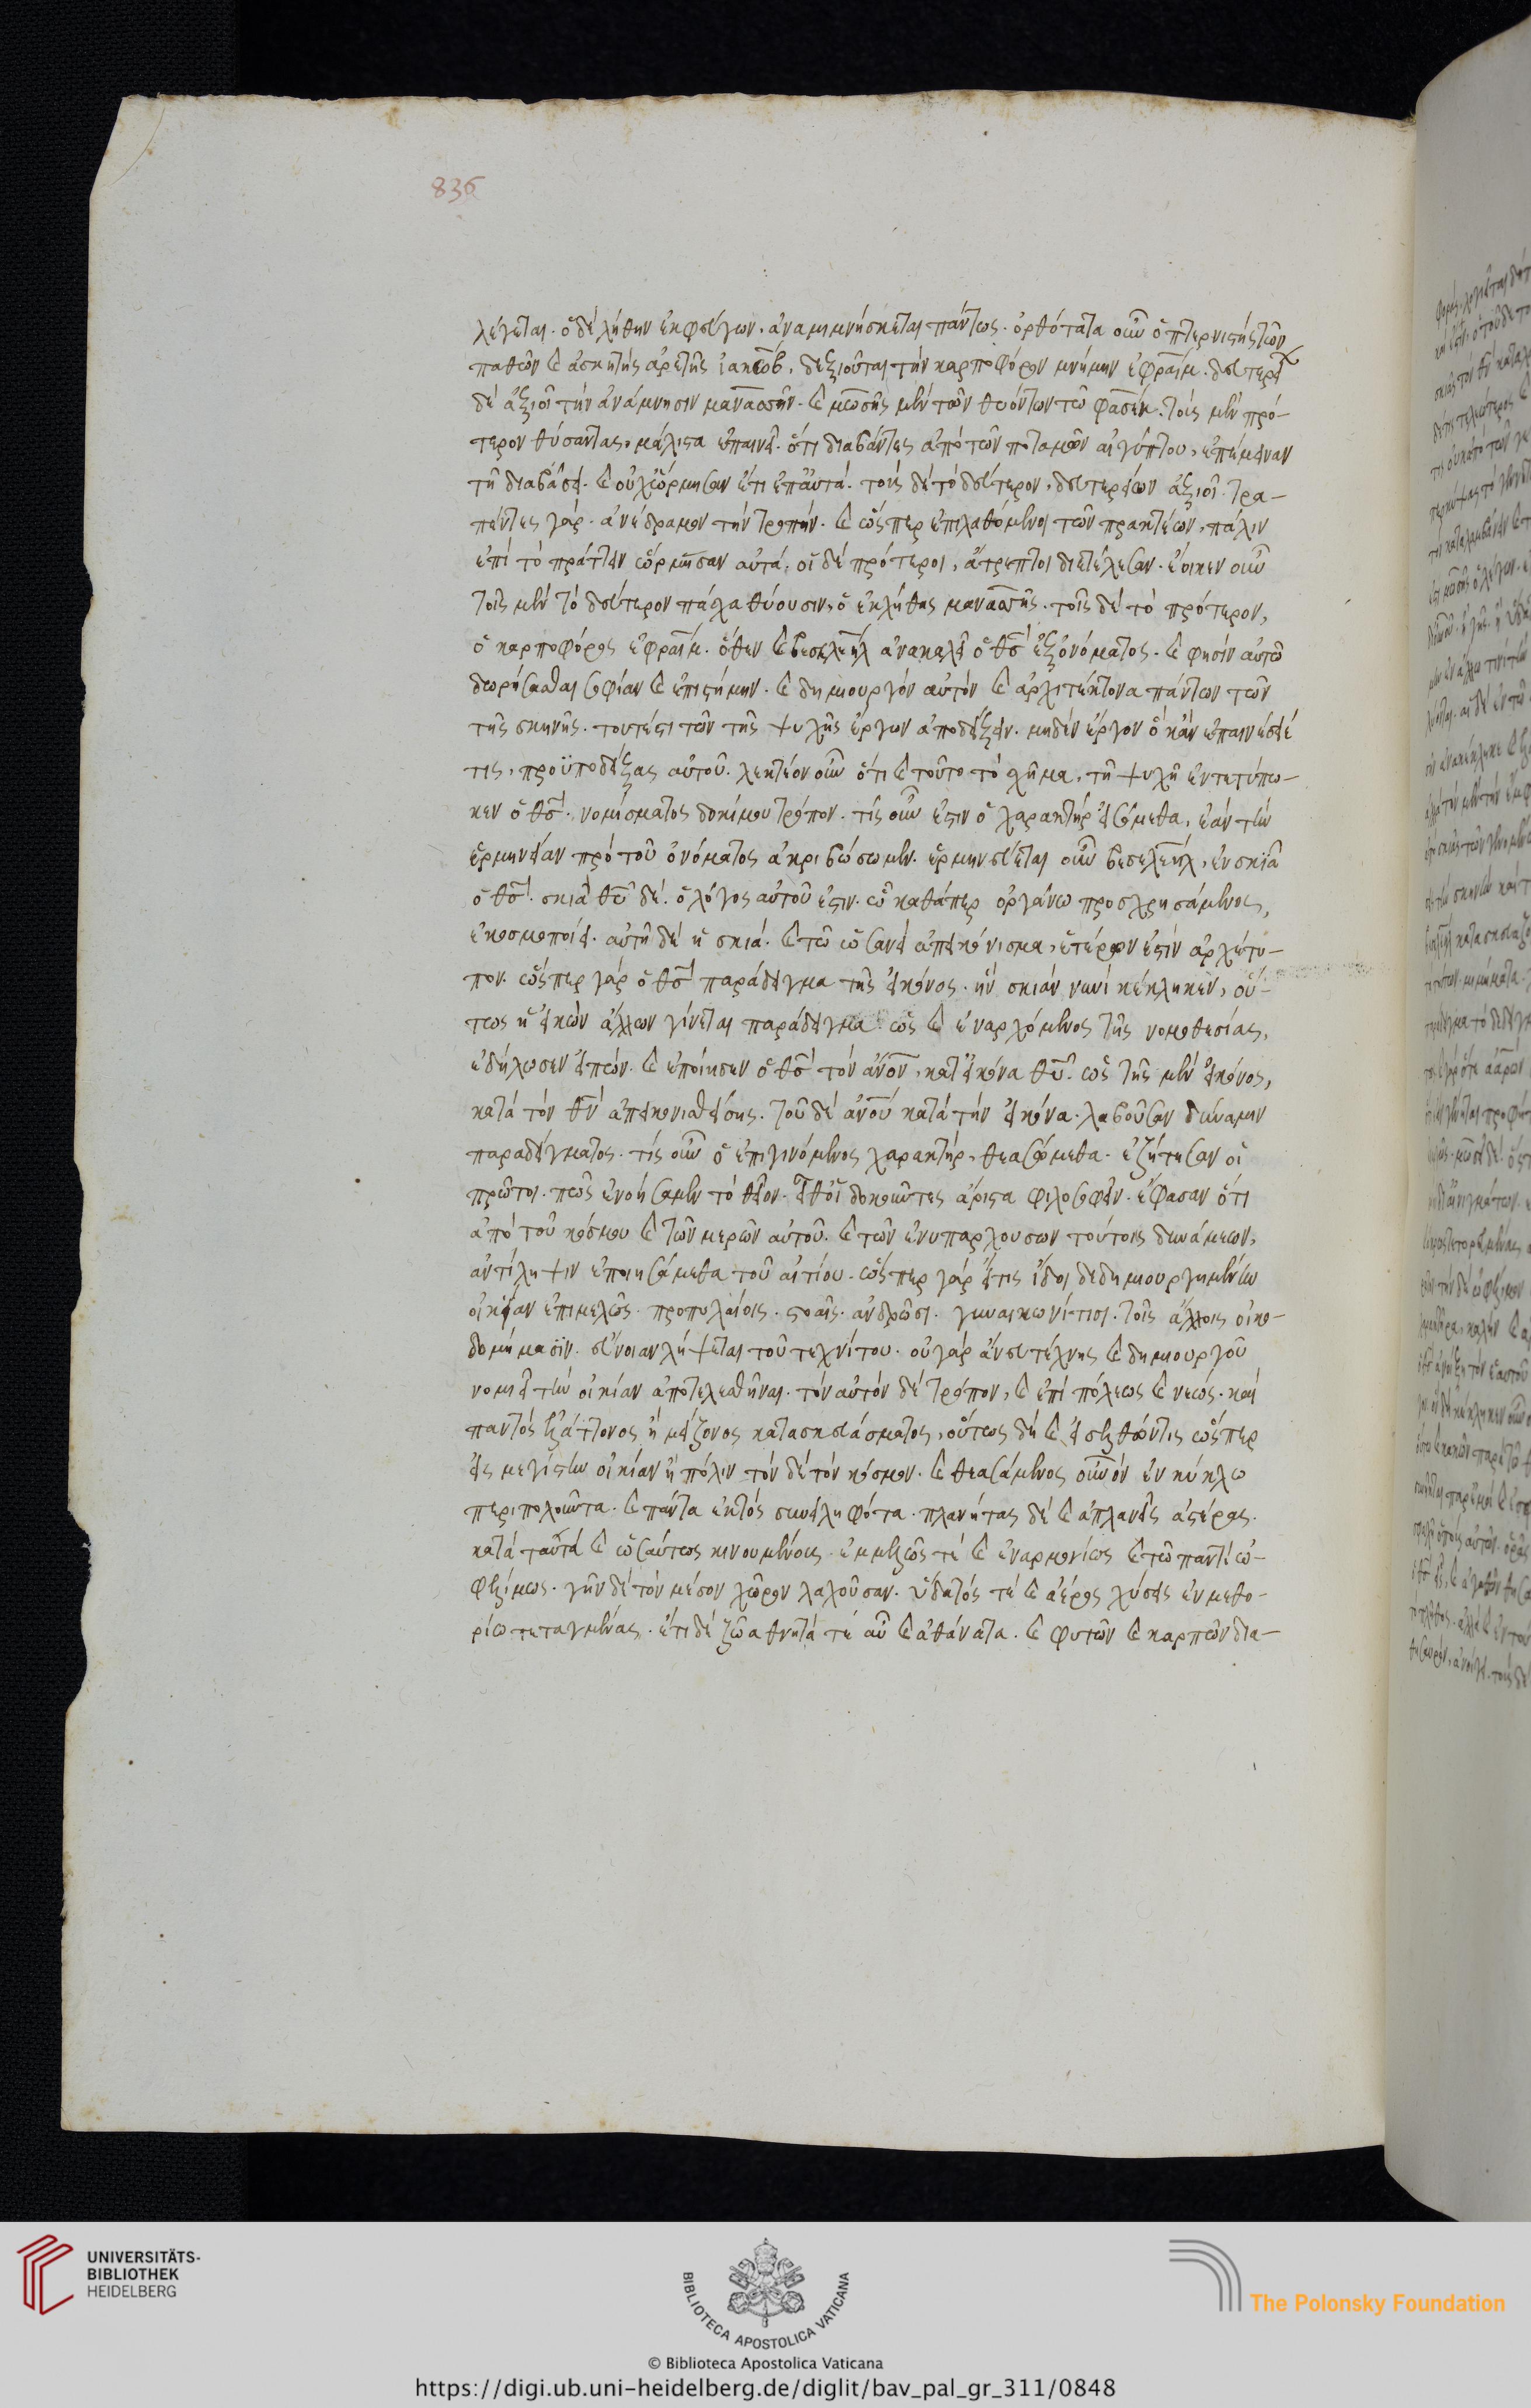 836
λέγεται. ὁ δὲ λήθην ἐκφεύγων, ἀναμιμνήσκεται πάντως. ὀρθότατα οὖν ὁ πτερνιστὴς τῶν
παθῶν καὶ ἀσκητὴς ἀρετῆς ἰακώβ, δεξιοῦται τὴν καρποφόρον μνήμην ἐφραΐμ. δευτερεί
δὲ ἀξιοῖ τὴν ἀνάμνησιν μανασσῆν. καὶ μωσῆς μὲν τῶν θυόντων τὸ φασέκ. τοὺς μὲν πρό-
τερον θύσαντας, μάλιστα ἐπαινεῖ. ὅτι διαβάντες ἀπὸ τῶν ποταμῶν αἰγύπτου, ἐπέμειναν
τῇ διαβάσει. καὶ οὐχ ὥρμησαν ἔτι ἐπ' αὐτά. τοὺς δὲ τὸ δεύτερον, δευτερείων ἀξιοῖ. τρα-
πέντες γάρ. ἀνέδραμον τὴν τροπήν. καὶ ὥσπερ ἐπιλαθόμενοι τῶν πρακτέων, πάλιν
ἐπὶ τὸ πράττειν ὥρμησαν αὐτά. οἱ δὲ πρότεροι, ἄτρεπτοι διετέλεσαν. ἔοικεν οὖν
τοῖς μὲν τὸ δεύτερον πάσχα θύουσιν, ὁ ἐκ λήθης μανασσῆς. τοῖς δὲ τὸ πρότερον,
ὁ καρποφόρος ἐφραΐμ. ὅθεν καὶ βεσελεήλ ἀνακαλεῖ ὁ θσ ἐξ ὀνόματος. καὶ φησὶν αὐτῶ
δωρήσασθαι σοφίαν καὶ ἐπιστήμην. καὶ δημιουργὸν αὐτὸν καὶ ἀρχιτέκτονα πάντων τῶν
τῆς σκηνῆς. τουτέστι τῶν τῆς ψυχῆς ἔργων ἀποδείξειν. μηδὲν ἔργον ὃ κἂν ἐπαινέσειέ
τις, προϋποδείξας αὐτοῦ. λεκτέον οὖν ὅτι καὶ τοῦτο τὸ σχῆμα, τῇ ψυχῇ ἐντετύπω-
κεν ὁ θσ. νομίσματος δοκίμου τρόπον. τίς οὖν ἐστιν ὁ χαρακτήρ εἰσόμεθα, ἐὰν τὴν
ἑρμηνείαν πρὸ τοῦ ὀνόματος ἀκριβώσωμεν. ἑρμηνεύεται οὖν βεσελεήλ, ἐν σκιᾷ
ὁ θσ. σκιὰ θυ δέ. ὁ λόγος αὐτοῦ ἐστιν. ᾧ καθάπερ ὀργάνω προσχρησάμενος,
ἐκοσμοποίει. αὕτη δὲ ἡ σκιά. καὶ τὸ ὡσανεὶ ἀπεικόνισμα, ἑτέρων ἐστὶν ἀρχέτυ-
πον. ὥσπερ γὰρ ὁ θσ παράδειγμα τῆς εἰκόνος. ἣν σκιὰν νυνὶ κέκληκεν, οὕ-
τως ἡ εἰκὼν ἄλλων γίνεται παράδειγμα. ὡς καὶ ἐναρχόμενος τῆς νομοθεσίας,
ἐδήλωσεν εἰπών. καὶ ἐποίησεν ὁ θσ τὸν ἄνον, κατ' εἰκόνα θυ. ὡς τῆς μὲν εἰκόνος,
κατὰ τὸν θν ἀπεικονισθείσης. τοῦ δὲ ἀνου κατὰ τὴν εἰκόνα. λαβοῦσαν δύναμιν
παραδείγματος. τίς οὖν ὁ ἐπιγινόμενος χαρακτήρ, θεασώμεθα. ἐζήτησαν οἱ
πρῶτοι. πῶς ἐνοήσαμεν τὸ θεῖον. εἶθ' οἱ δοκοῦντες ἄριστα φιλοσοφεῖν. ἔφασαν ὅτι
ἀπὸ τοῦ κόσμου καὶ τῶν μερῶν αὐτοῦ. καὶ τῶν ἐνυπαρχουσων τούτοις δυνάμεων,
ἀντίληψιν ἐποιησάμεθα τοῦ αἰτίου. ὥσπερ γὰρ εἴ τις ἴδοι δεδημιουργημένην
οἰκείαν ἐπιμελῶς. προπυλαίοις. στοαῖς. ἀνδρῶσι. γυναικωνίτισι. τοῖς ἄλλοις οἰκο-
δομήμασϊν. εὔνοιαν λήψεται τοῦ τεχνίτου. οὐ γὰρ ἄνευ τέχνης καὶ δημιουργοῦ
νομιεῖ τὴν οἰκίαν ἀποτελεσθῆναι. τὸν αὐτὸν δὲ τρόπον, καὶ ἐπὶ πόλεως καὶ νεώς. καὶ
παντὸς ἐλάττονος ἢ μείζονος κατασκευάσματος, οὕτως δὴ καὶ εἰσελθών τις ὥσπερ
εἰς μεγίστην οἰκίαν ἢ πόλιν τὸν δὲ τὸν κόσμον. καὶ θεασάμενος οὐνὸν ἐν κύκλω
περιπολοῦντα. καὶ πάντα ἐκτὸς συνειληφότα. πλανήτας δὲ καὶ ἀπλανεῖς ἀστέρας.
κατὰ ταὐτὰ καὶ ὡσαύτως κινουμένους. ἐμμελῶς τὲ καὶ ἐναρμονίως καὶ τῶ παντὶ ὠ-
φελίμως. γῆν δὲ τὸν μέσον χῶρον λαχοῦσαν. ὕδατός τε καὶ ἀέρος χύσεις ἐν μεθο-
ρίω τεταγμένας. ἔτι δὲ ζῶα θνητά τε αὖ καὶ ἀθάνατα. καὶ φυτῶν καὶ καρπῶν δια-
UNIVERSITÄTS-
BIBLIOTHEK
HEIDELBERG
BIBLIOTECA APOSTOLICA VATICANA
The Polonsky Foundation
© Biblioteca Apostolica Vaticana
https://digi.ub.uni-heidelberg.de/diglit/bav_pal_gr_311/0848